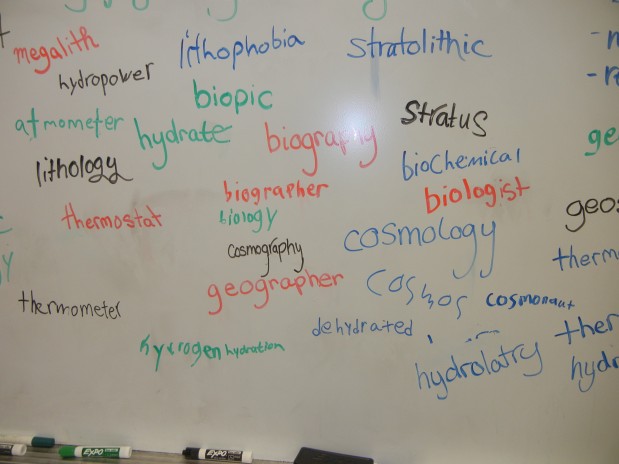 megalith
lithophobia
stratolithic
hydropower
biopic
atmometer
hydrate
biography
stratus
biochemical
lithology
biographer
biologist
thermostat
biology
geos
cosmography
cosmology
therm
geographer
cosmos
cosmonaut
thermometer
dehydrated
ther
hydrogen hydration
hydrolatry
hydr
EXPO
EXPO